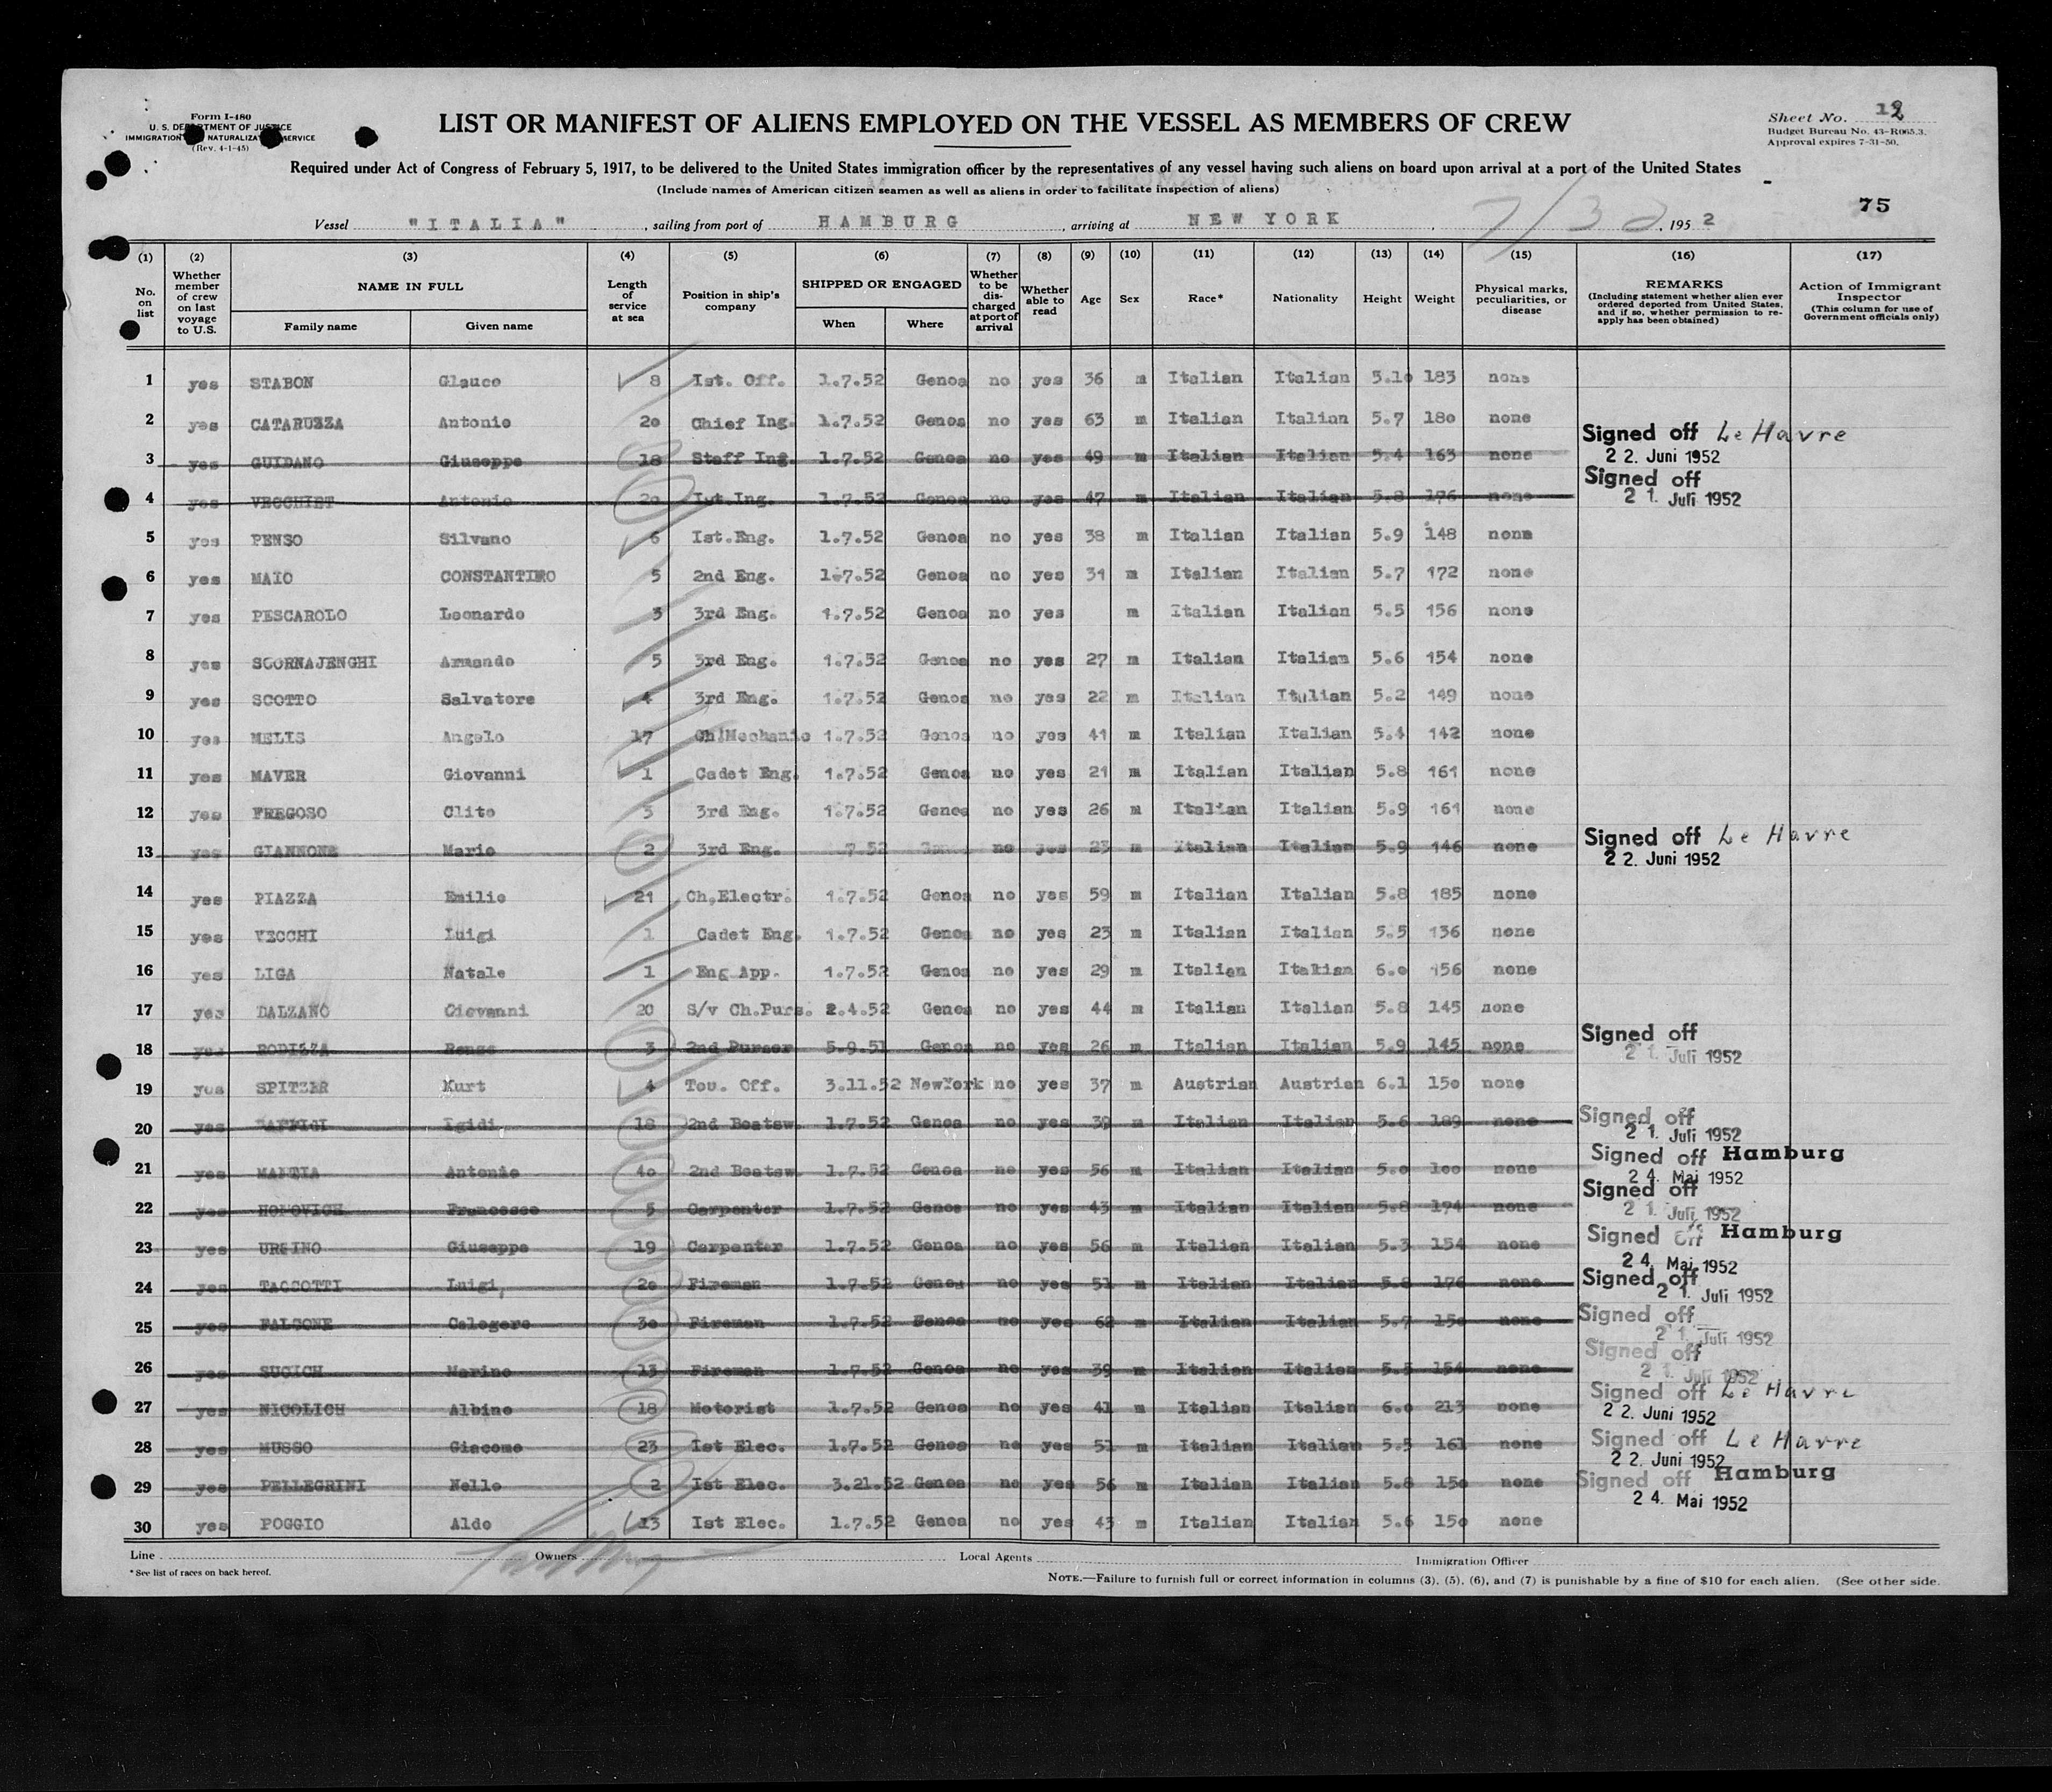 Form I-480
U. S. DEPARTMENT OF JUSTICE
IMMIGRATION NATURALIZATION SERVICE
(Rev. 4-1-45)
LIST OR MANIFEST OF ALIENS EMPLOYED ON THE VESSEL AS MEMBERS OF CREW
Sheet No. 12
Budget Bureau No. 43-R065.3.
Approval expires 7-31-50.
Required under Act of Congress of February 5, 1917, to be delivered to the United States immigration officer by the representatives of any vessel having such aliens on board upon arrival at a port of the United States
(Include names of American citizen seamen as well as aliens in order to facilitate inspection of aliens)
75
Vessel "ITALIA", sailing from port of HAMBURG, arriving at NEW YORK, 7/30, 1952
(1) (2) (3) (4) (5) (6) (7) (8) (9) (10) (11) (12) (13) (14) (15) (16) (17)
No. on list
Whether member of crew on last voyage to U.S.
NAME IN FULL
Family name Given name
Length of service at sea
Position in ship's company
SHIPPED OR ENGAGED
When Where
Whether to be discharged at port of arrival
Whether able to read
Age Sex Race* Nationality Height Weight
Physical marks, peculiarities, or disease
REMARKS
(Including statement whether alien ever ordered deported from United States, and if so, whether permission to re-apply has been obtained)
Action of Immigrant Inspector
(This column for use of Government officials only)
1 yes STABON Glauco 8 Ist. Off. 1.7.52 Genoa no yes 36 m Italian Italian 5.10 183 none
2 yes CATARUZZA Antonio 20 Chief Ing. 1.7.52 Genoa no yes 63 m Italian Italian 5.7 180 none
3 yes GUIDANO Giuseppe 18 Staff Ing. 1.7.52 Genoa no yes 49 m Italian Italian 5.4 163 none Signed off Le Havre 22. Juni 1952
4 yes VECCHIET Antonio 20 Ist Ing. 1.7.52 Genoa no yes 47 m Italian Italian 5.8 176 none Signed off 21. Juli 1952
5 yes PENSO Silvano 6 Ist.Eng. 1.7.52 Genoa no yes 38 m Italian Italian 5.9 148 none
6 yes MAIO CONSTANTINO 5 2nd Eng. 1.7.52 Genoa no yes 31 m Italian Italian 5.7 172 none
7 yes PESCAROLO Leonardo 3 3rd Eng. 1.7.52 Genoa no yes m Italian Italian 5.5 156 none
8 yes SCORNAJENGHI Armando 5 3rd Eng. 1.7.52 Genoa no yes 27 m Italian Italian 5.6 154 none
9 yes SCOTTO Salvatore 4 3rd Eng. 1.7.52 Genoa no yes 22 m Italian Italian 5.2 149 none
10 yes MELIS Angelo 17 Ch!Mechanic 1.7.52 Genoa no yes 41 m Italian Italian 5.4 142 none
11 yes MAVER Giovanni 1 Cadet Eng. 1.7.52 Genoa no yes 21 m Italian Italian 5.8 161 none
12 yes FREGOSO Clito 3 3rd Eng. 1.7.52 Genoa no yes 26 m Italian Italian 5.9 161 none
13 yes GIANNONE Mario 2 3rd Eng. 7.52 Genoa no yes 23 m Italian Italian 5.9 146 none Signed off Le Havre 22. Juni 1952
14 yes PIAZZA Emilio 21 Ch,Electr. 1.7.52 Genoa no yes 59 m Italian Italian 5.8 185 none
15 yes VECCHI Luigi 1 Cadet Eng. 1.7.52 Genoa no yes 23 m Italian Italian 5.5 136 none
16 yes LIGA Natale 1 Eng App. 1.7.52 Genoa no yes 29 m Italian Italian 6.0 156 none
17 yes DALZANO Giovanni 20 S/v Ch.Purs. 2.4.52 Genoa no yes 44 m Italian Italian 5.8 145 none
18 yes Renzo 3 2nd Purser 5.9.51 Genoa no yes 26 m Italian Italian 5.9 145 none Signed off 21. Juli 1952
19 yes SPITZER Kurt 4 Tou. Off. 3.11.52 NewYork no yes 37 m Austrian Austrian 6.1 150 none
20 yes 18 2nd Boatsw. 1.7.52 Genoa no yes 39 m Italian Italian 5.6 189 none Signed off 21. Juli 1952
21 yes Antonio 40 2nd Boatsw. 1.7.52 Genoa no yes 56 m Italian Italian 5.0 100 none Signed off Hamburg 24. Mai 1952
22 yes Francesco 5 Carpenter 1.7.52 Genoa no yes 43 m Italian Italian 5.8 174 none Signed off 21. Juli 1952
23 yes URSINO Giuseppe 19 Carpenter 1.7.52 Genoa no yes 56 m Italian Italian 5.3 154 none Signed off Hamburg 24. Mai 1952
24 yes TACCOTTI Luigi, 20 Fireman 1.7.52 Genoa no yes 51 m Italian Italian 5.8 176 none Signed off 21. Juli 1952
25 yes FALCONE Calogero 30 Fireman 1.7.52 Genoa no yes 62 m Italian Italian 5.7 150 none Signed off 21. Juli 1952
26 yes SUCICH Marino 13 Fireman 1.7.52 Genoa no yes 39 m Italian Italian 5.5 154 none Signed off 21. Juli 1952
27 yes NICOLICH Albino 18 Motorist 1.7.52 Genoa no yes 41 m Italian Italian 6.0 213 none Signed off Le Havre 22. Juni 1952
28 yes MUSSO Giacomo 23 Ist Elec. 1.7.52 Genoa no yes 51 m Italian Italian 5.5 161 none Signed off Le Havre 22. Juni 1952
29 yes PELLEGRINI Nello 2 Ist Elec. 3.21.52 Genoa no yes 56 m Italian Italian 5.8 150 none Signed off Hamburg 24. Mai 1952
30 yes POGGIO Aldo 13 Ist Elec. 1.7.52 Genoa no yes 43 m Italian Italian 5.6 150 none
Line Owners Local Agents Immigration Officer
*See list of races on back hereof.
NOTE.—Failure to furnish full or correct information in columns (3), (5), (6), and (7) is punishable by a fine of $10 for each alien. (See other side.